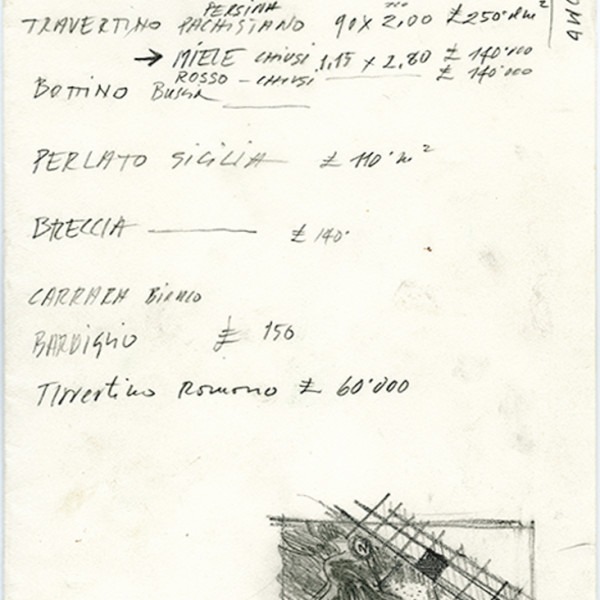 PERSINA
TRAVERTINO PACHISTANO 90 X 2,00 £250 m²
→ MIELE CHIUSI 1,15 x 2,80 £ 140'000
ROSSO - CHIUSI £ 140'000
BOTTINO
PERLATO SICILIA £ 110' m²
BRECCIA £ 140'
CARRARA Bianco
BARDIGLIO £ 150
Travertino Romano £ 60'000
2